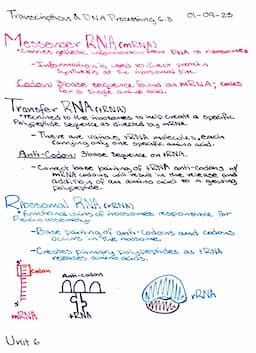 Transcription & DNA Processing 6.3 01-09-23
Messenger RNA (mRNA)
• Carries genetic information from DNA to ribosomes
- Information is used to direct protein
synthesis at the ribosomal site.
Codon: Base sequence found on mRNA; codes
for a single amino acid.
Transfer RNA (tRNA)
• recruited to the ribosomes to help create a specific
Polypeptide sequence as directed by mRNA.
- There are various tRNA molecules, each
carrying only one specific amino acid.
Anti-Codon: Base sequence on tRNA.
- Correct base pairing of tRNA anti-codons w/
mRNA codons will result in the release and
addition of an amino acid to a growing
polypeptide.
Ribosomal RNA (rRNA)
• Functional units of ribosomes responsible for
Protein assembly
- Base pairing of anti-codons and codons
occurs in the ribosome.
- Creates primary polypeptides as tRNA
releases amino acids.
Codon
mRNA
Anti-codons
tRNA
rRNA
Unit 6